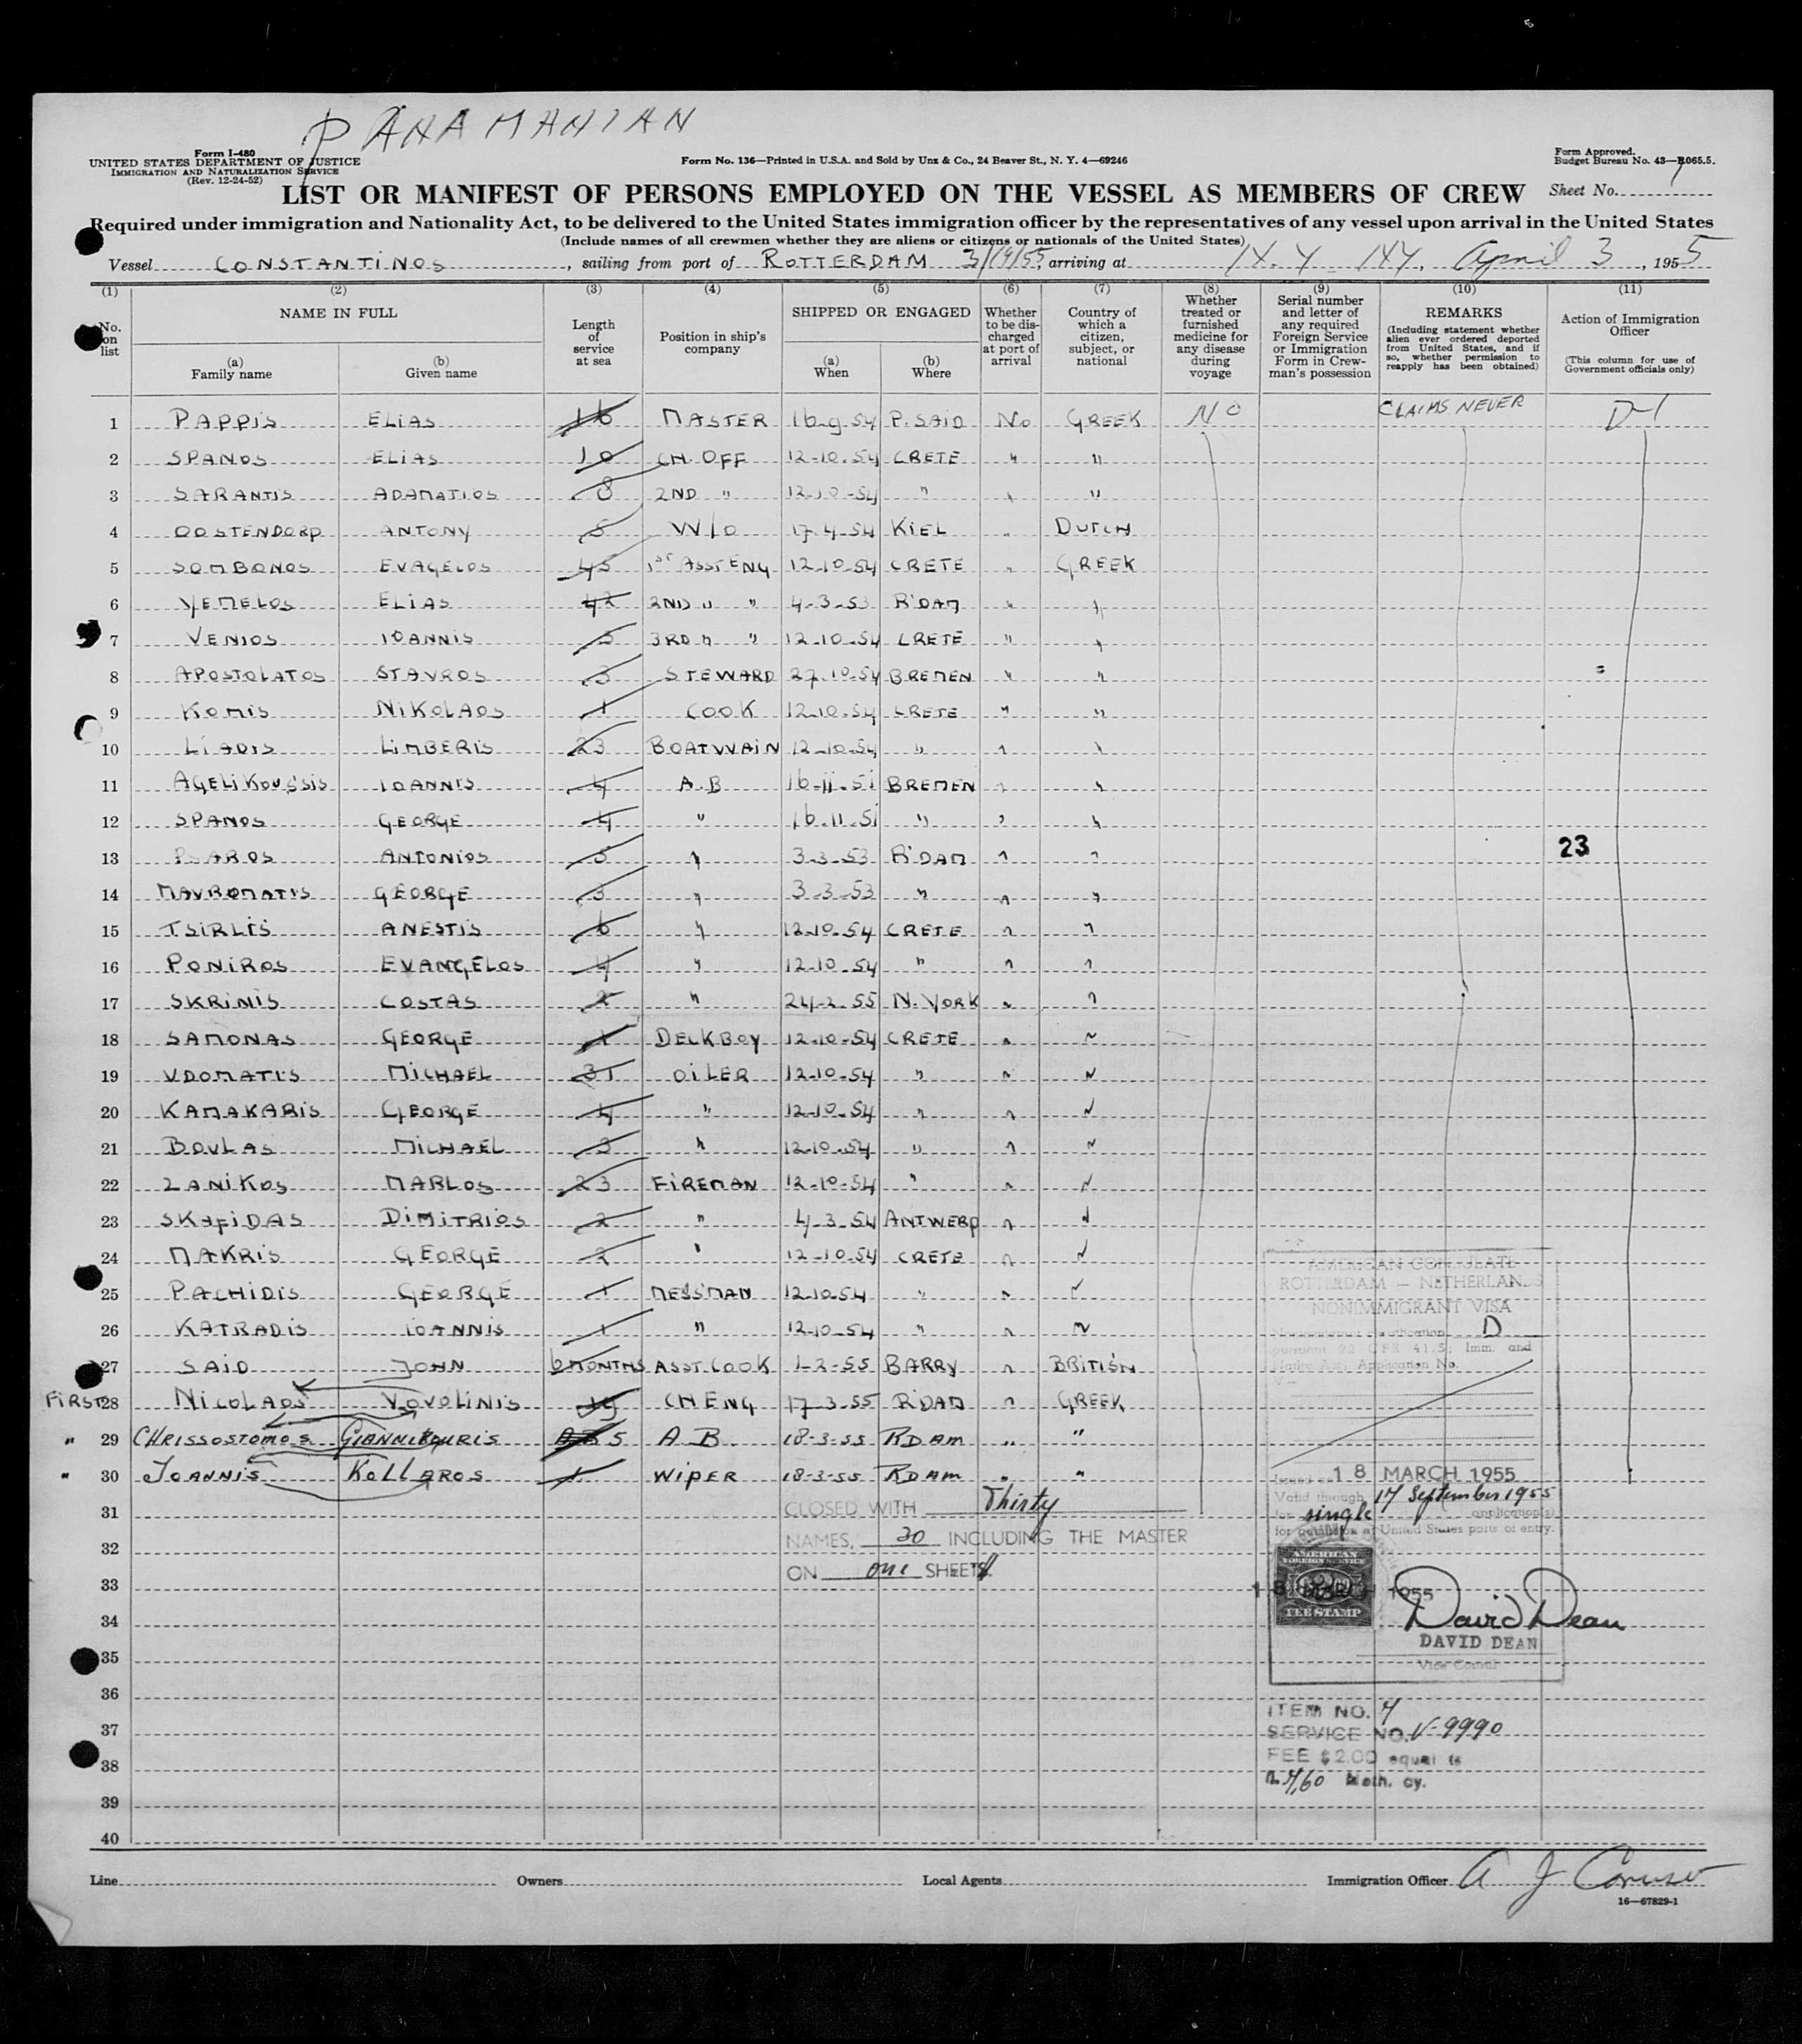 PANAMANIAN
Form I-480
UNITED STATES DEPARTMENT OF JUSTICE
IMMIGRATION AND NATURALIZATION SERVICE
(Rev. 12-24-52)
Form No. 136—Printed in U.S.A. and Sold by Unz & Co., 24 Beaver St., N. Y. 4—69246
Form Approved.
Budget Bureau No. 43—R065.5.
LIST OR MANIFEST OF PERSONS EMPLOYED ON THE VESSEL AS MEMBERS OF CREW
Sheet No. 1
Required under immigration and Nationality Act, to be delivered to the United States immigration officer by the representatives of any vessel upon arrival in the United States
(Include names of all crewmen whether they are aliens or citizens or nationals of the United States)
Vessel CONSTANTINOS, sailing from port of ROTTERDAM 3/19/55, arriving at N.Y. NY. April 3, 1955
(1) (2) (3) (4) (5) (6) (7) (8) (9) (10) (11)
No. on list
NAME IN FULL
(a) Family name
(b) Given name
Length of service at sea
Position in ship's company
SHIPPED OR ENGAGED
(a) When
(b) Where
Whether to be discharged at port of arrival
Country of which a citizen, subject, or national
Whether treated or furnished medicine for any disease during voyage
Serial number and letter of any required Foreign Service or Immigration Form in Crewman's possession
REMARKS
(Including statement whether alien ever ordered deported from United States, and if so, whether permission to reapply has been obtained)
Action of Immigration Officer
(This column for use of Government officials only)
1 PAPPIS ELIAS 16 MASTER 16-9-54 P. SAID No GREEK NO CLAIMS NEVER D-1
2 SPANOS ELIAS 10 CH. OFF 12-10-54 CRETE " "
3 SARANTIS ADAMATIOS 8 2ND " 12-10-54 " " "
4 OOSTENDORP ANTONY 5 W/O 17-4-54 KIEL " DUTCH
5 SOMBONOS EVAGELOS 45 1ST ASST ENG 12-10-54 CRETE " GREEK
6 VEMELOS ELIAS 42 2ND " " 4-3-53 R'DAM " "
7 VENIOS IOANNIS 5 3RD " " 12-10-54 CRETE " "
8 APOSTOLATOS STAVROS 3 STEWARD 27-10-54 BREMEN " "
9 KOMIS NIKOLAOS 1 COOK 12-10-54 CRETE " "
10 LIADIS LIMBERIS 23 BOATWAIN 12-10-54 " " "
11 AGELIKOUSSIS IOANNIS 4 A.B 16-11-51 BREMEN " "
12 SPANOS GEORGE 4 " 16-11-51 " " "
13 PSAROS ANTONIOS 5 " 3-3-53 R'DAM " " 23
14 MAVROMATIS GEORGE 3 " 3-3-53 " " "
15 TSIRLIS ANESTIS 6 " 12-10-54 CRETE " "
16 PONIROS EVANGELOS 4 " 12-10-54 " " "
17 SKRINIS COSTAS 2 " 24-2-55 N. YORK " "
18 SAMONAS GEORGE 1 DECKBOY 12-10-54 CRETE " "
19 VDOMATIS MICHAEL 31 OILER 12-10-54 " " "
20 KAMAKARIS GEORGE 4 " 12-10-54 " " "
21 BOULAS MICHAEL 3 " 12-10-54 " " "
22 ZANIKOS MARLOS 23 FIREMAN 12-10-54 " " "
23 SKAFIDAS DIMITRIOS 2 " 4-3-54 ANTWERP " "
24 MAKRIS GEORGE 2 " 12-10-54 CRETE " "
25 PACHIDIS GEORGE 1 MESSMAN 12-10-54 " " "
26 KATRADIS IOANNIS 1 " 12-10-54 " " "
27 SAID JOHN 6 MONTHS ASST. COOK 1-2-55 BARRY " BRITISH
FIRST 28 NICOLAOS VOVOLINIS 19 CH ENG 17-3-55 R'DAM " GREEK
" 29 CHRISSOSTOMOS GIANNIKOURIS 5 A B 18-3-55 RDAM " "
" 30 JOANNIS KOLLAROS 1 WIPER 18-3-55 RDAM " "
31
32
33
34
35
36
37
38
39
40
CLOSED WITH Thirty
NAMES, 30 INCLUDING THE MASTER
ON one SHEET
AMERICAN CONSULATE
ROTTERDAM — NETHERLANDS
NONIMMIGRANT VISA
Nonimmigrant classification D
pursuant 22 CFR 41.5; Imm. and
Nat'y Act; Application No.
V—
Issued on 18 MARCH 1955
Valid through 17 September 1955
for single application(s)
for admission at United States ports of entry.
AMERICAN
FOREIGN SERVICE
FEE STAMP
18 MARCH 1955
David Dean
DAVID DEAN
Vice Consul
ITEM NO. 7
SERVICE NO. V-9990
FEE $2.00 equal to
fl. 7,60 Neth. cy.
Line
Owners
Local Agents
Immigration Officer A J Caruso
16—67829-1